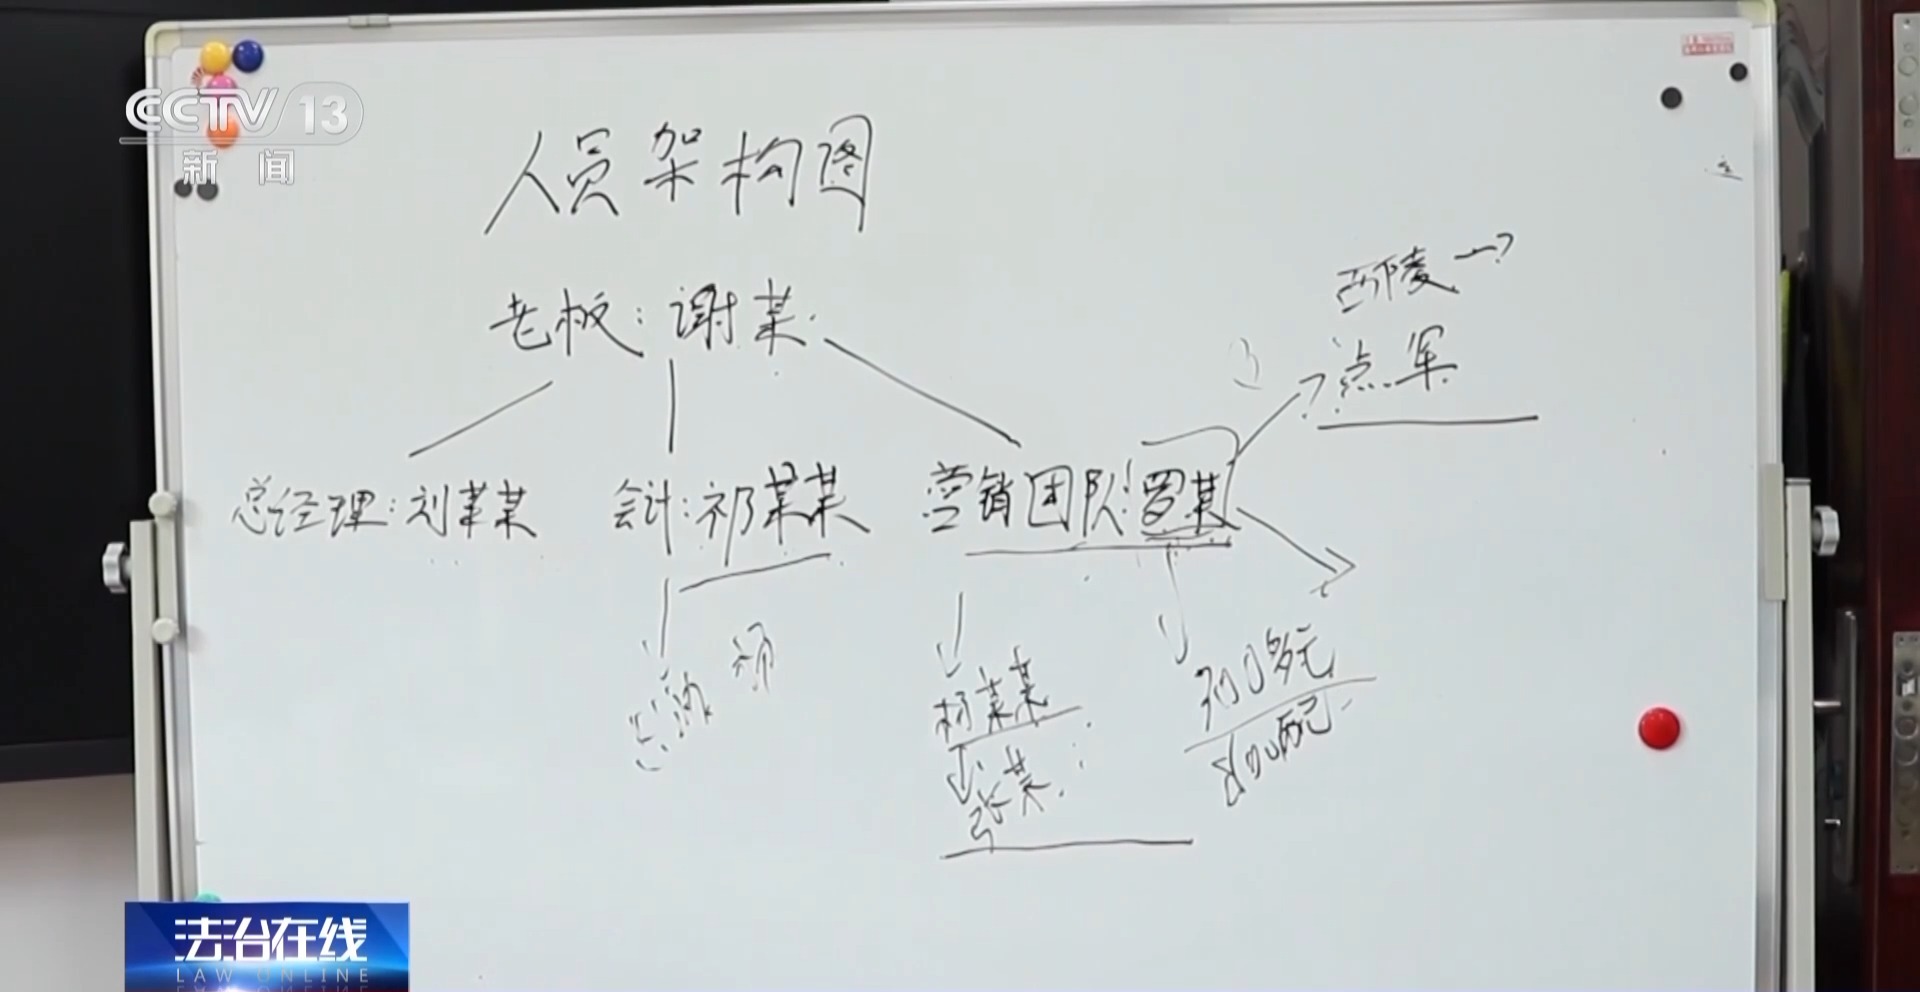 CCTV 13
新闻
人员架构图
老板：谢某
西陵
点军
总经理：刘某某 会计：祁某某 营销团队：罗某
杨某某
张某
300多元
法治在线
LAW ONLINE